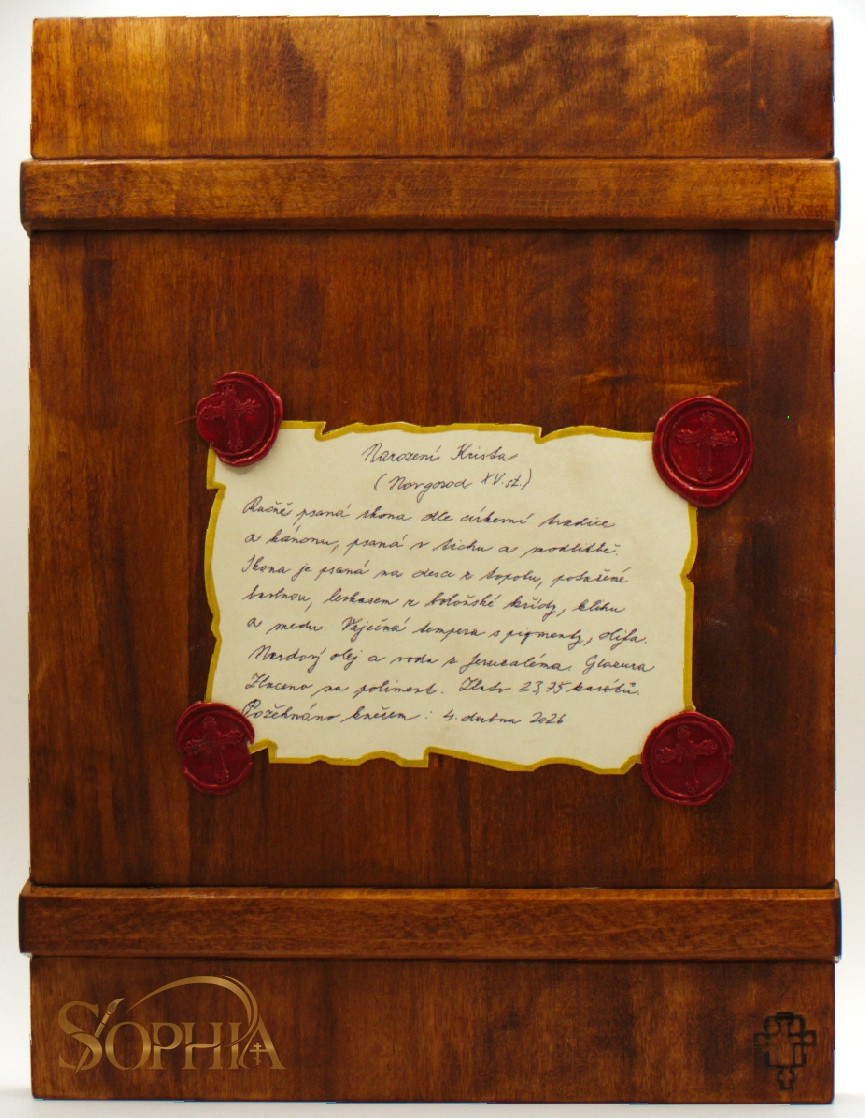 Narození Krista
(Novgorod XV. st.)
Ručně psaná ikona dle církevní tradice
a kánonu, psaná v tichu a modlitbě.
Ikona je psaná na desce z topolu, potažené
bavlnou, levkasem z boloňské křídy, klihu
a medu. Vaječná tempera s pigmenty, olifa.
Nardový olej a voda z Jeruzaléma. Glazura
Zlaceno na poliment. Zlato 23,75 karátů.
Požehnáno knězem : 4. dubna 2026
SOPHIA